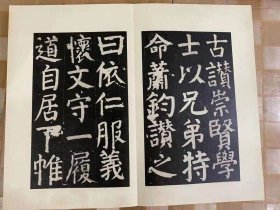 古讃崇賢學
士以兄弟特
命蕭鈞讃之
曰依仁服義
懷文守一履
道自居下帷